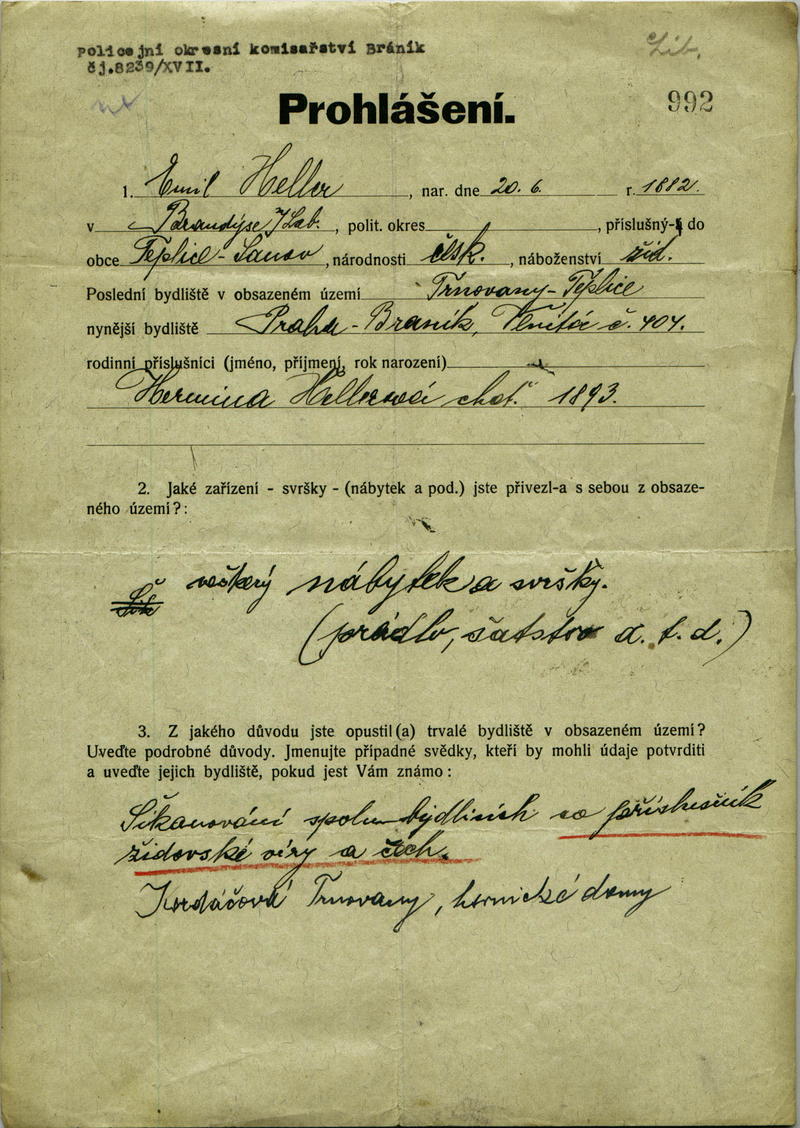 Policejní okresní komisařství Bráník
čj.8239/XVII.
Lib.
992
Prohlášení.
1. Emil Heller, nar. dne 20. 6. r. 1882.
v Brandýse /Lab., polit. okres, příslušný- do
obce Teplice-Šanov, národnosti česk., náboženství žid.
Poslední bydliště v obsazeném území Trnovany-Teplice
nynější bydliště Praha-Braník, č. 404.
rodinní příslušníci (jméno, příjmení, rok narození)
Hermina Hellerová choť. 1893.
2. Jaké zařízení - svršky - (nábytek a pod.) jste přivezl-a s sebou z obsaze-
ného území?:
veškerý nábytek a svršky.
(prádlo, šatstvo a. t. d.)
3. Z jakého důvodu jste opustil(a) trvalé bydliště v obsazeném území?
Uveďte podrobné důvody. Jmenujte případné svědky, kteří by mohli údaje potvrditi
a uveďte jejich bydliště, pokud jest Vám známo:
Šikanování spolu bydlících co příslušník
židovské víry a čech.
Kordáčová Trnovany, hornické domy